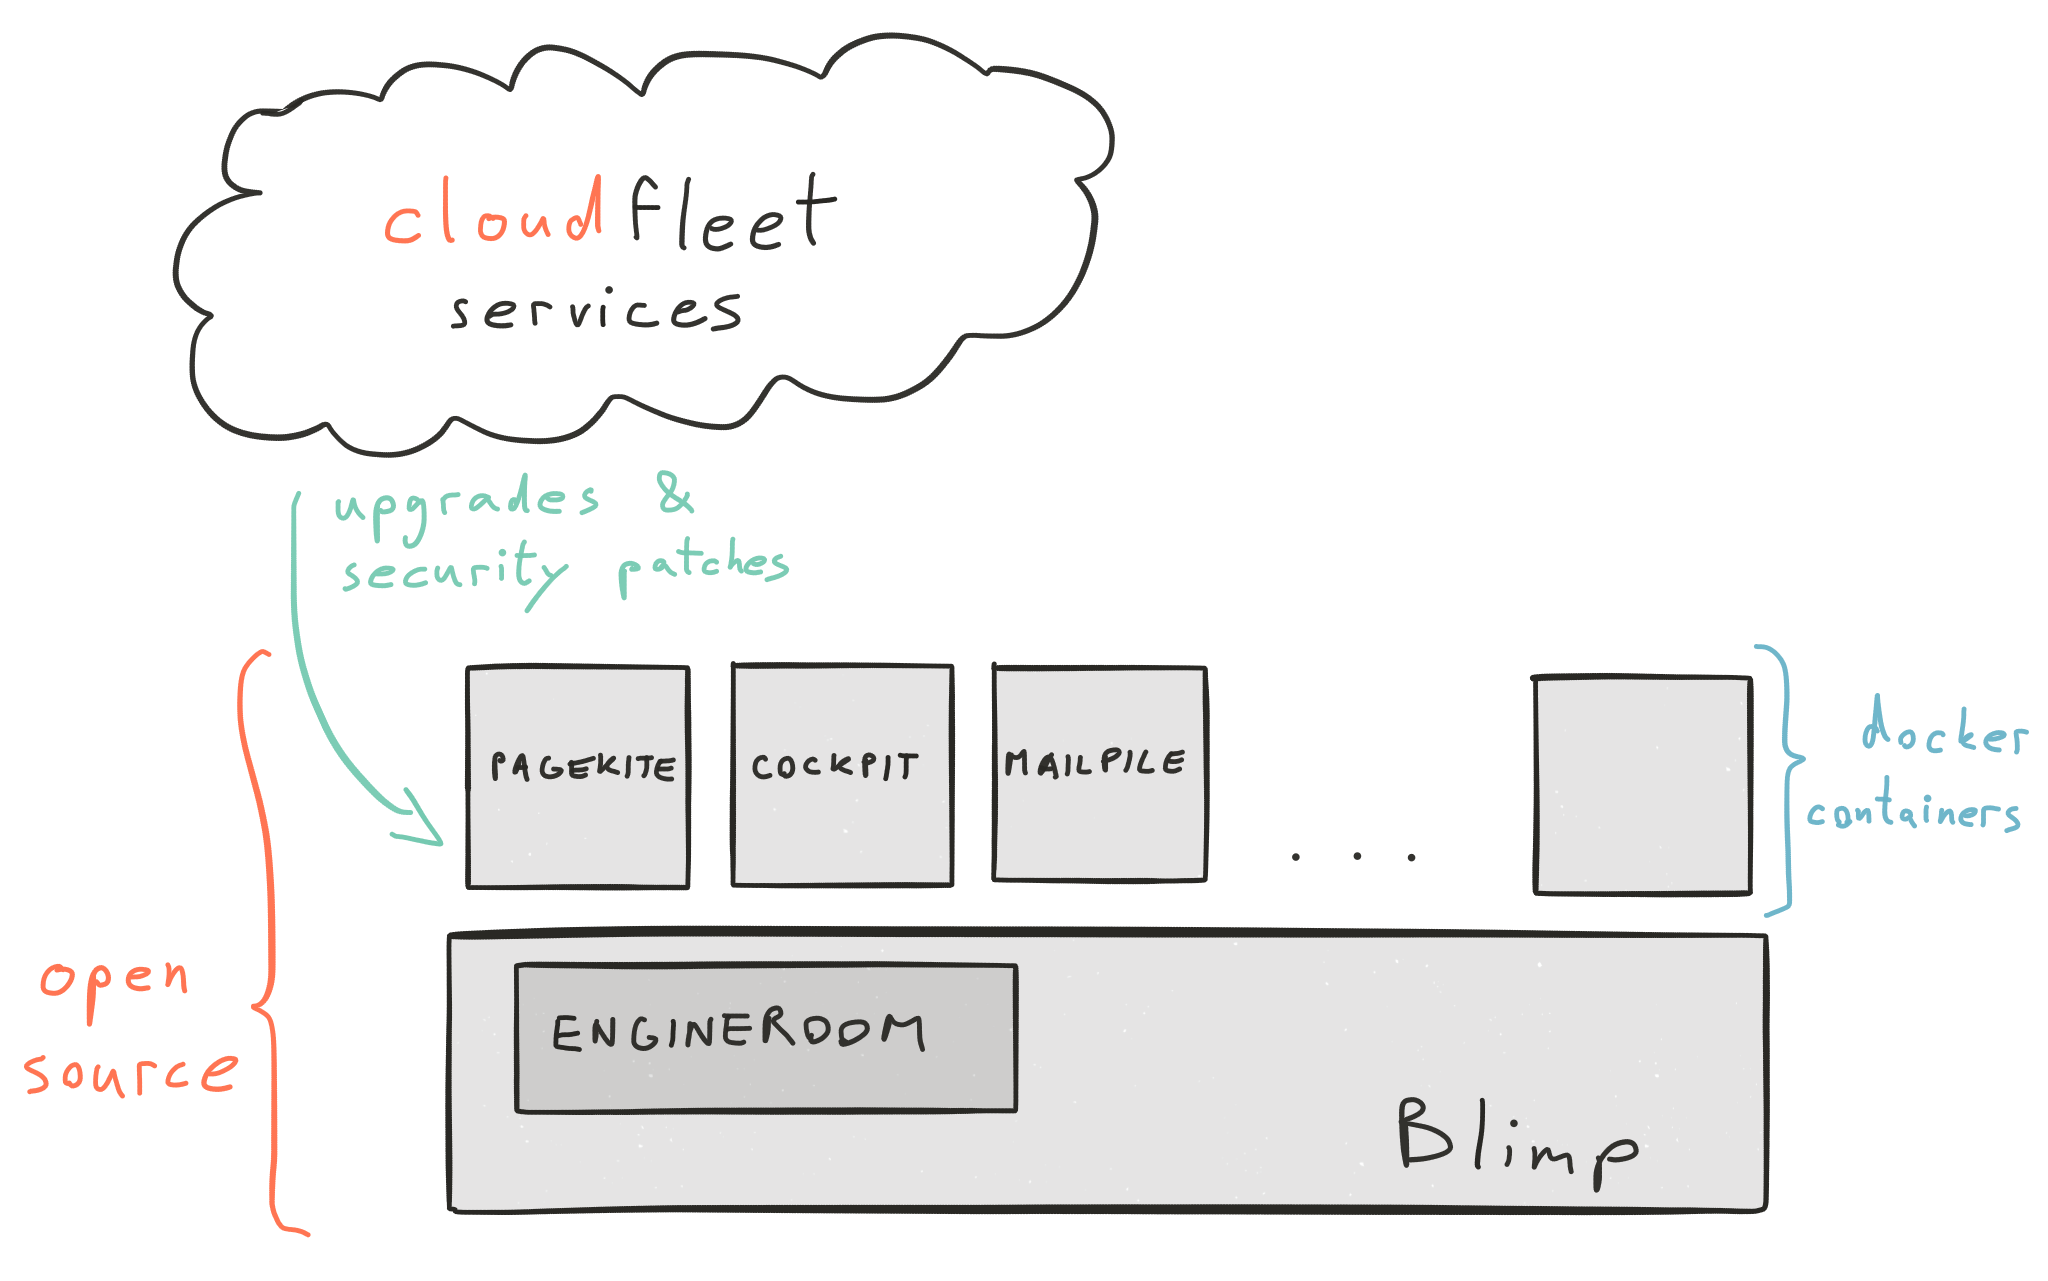 cloudfleet
services
upgrades &
security patches
PAGEKITE
COCKPIT
MAILPILE
. . .
docker
containers
open
source
ENGINEROOM
Blimp